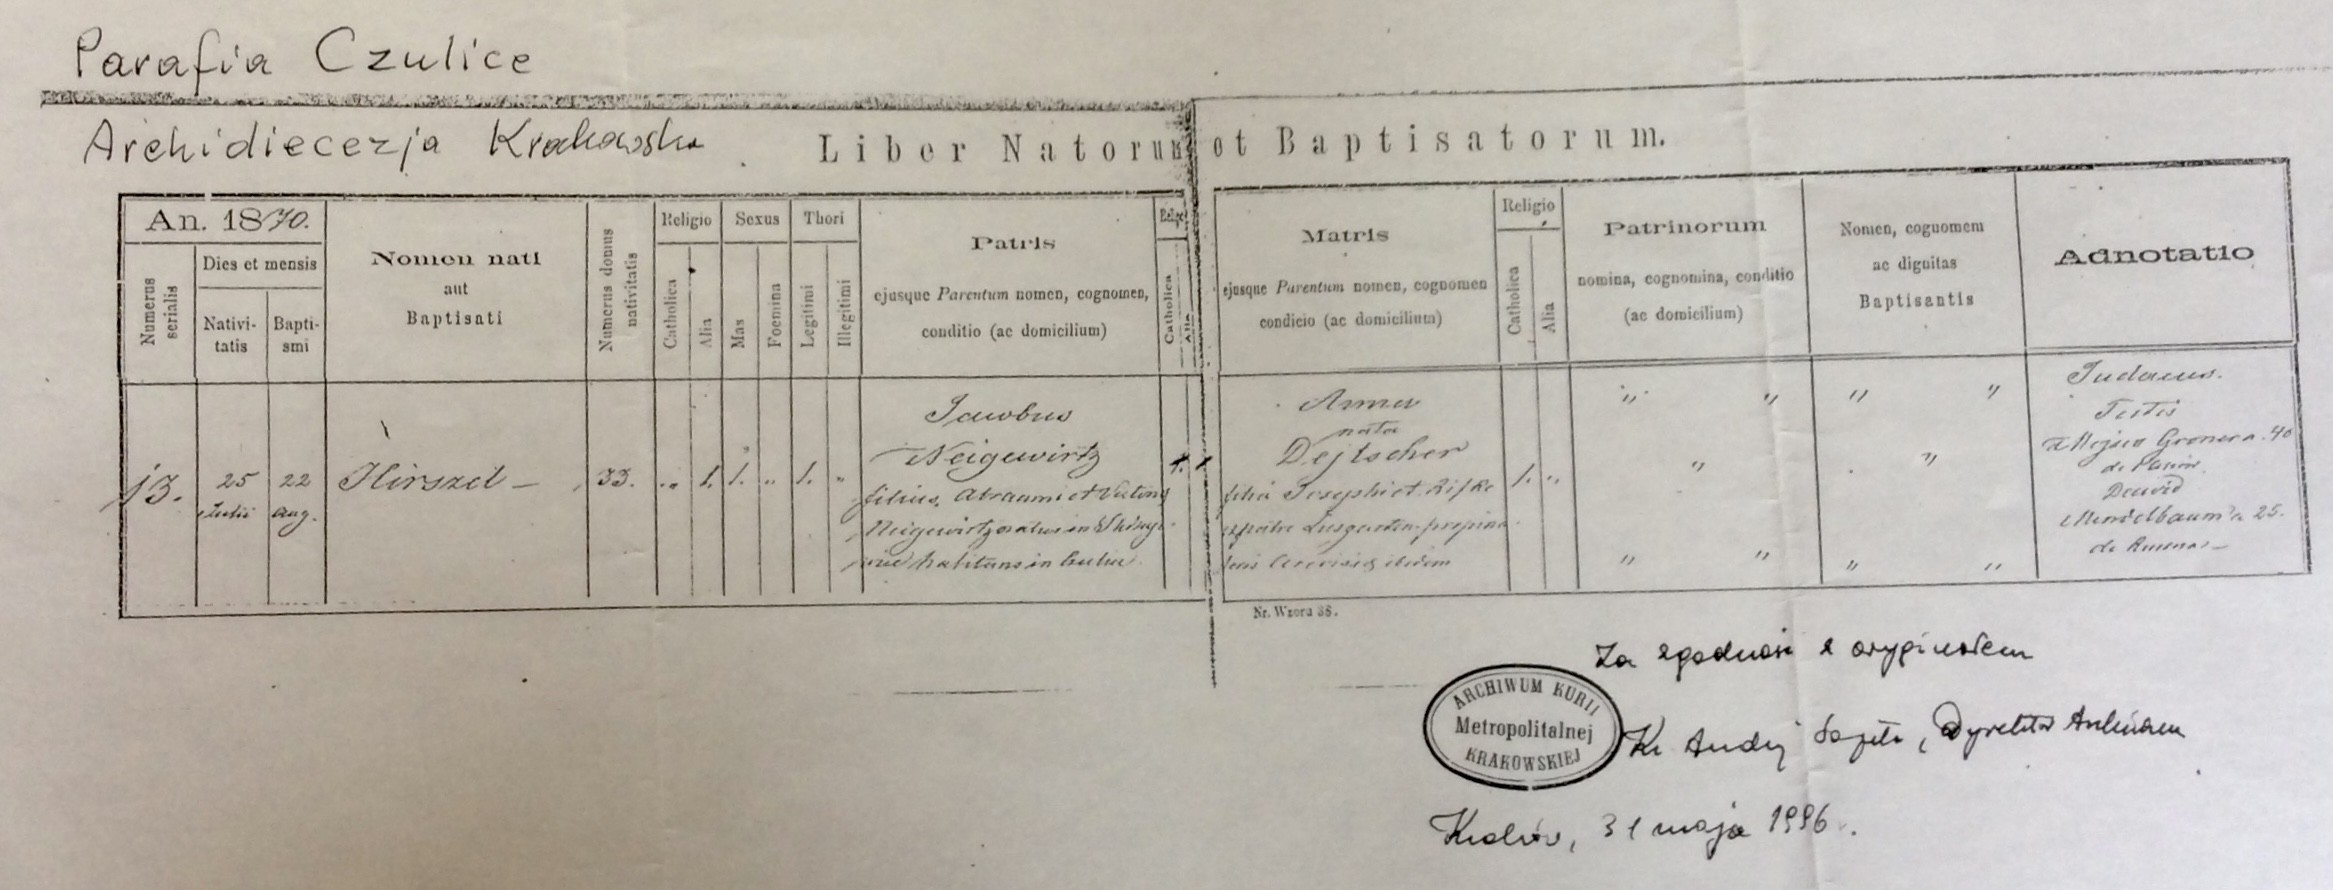 Parafia Czulice
Archidiecezja Krakowska
Liber Natorum et Baptisatorum.
An. 1870.
Numerus serialis
Dies et mensis
Nativi-
tatis
Bapti-
smi
Nomen nati
aut
Baptisati
Numerus domus
nativitatis
Religio
Catholica
Alia
Sexus
Mas
Foemina
Thori
Legitimi
Illegitimi
Patris
ejusque Parentum nomen, cognomen,
conditio (ac domicilium)
Catholica
Alia
Matris
ejusque Parentum nomen, cognomen
condicio (ac domicilium)
Religio
Catholica
Alia
Patrinorum
nomina, cognomina, conditio
(ac domicilium)
Nomen, cognomem
ac dignitas
Baptisantis
Adnotatio
13.
25
Julii
22
Aug.
Hirszel –
33.
" 1. 1. " 1. "
Jacobus
Neigewirtz
filius Abraami et
Neigewirtz natus in
habitans in
Anna
nata
Dejtscher
filia Josephi et Rifke
ibidem
1. "
" "
"
" "
" "
"
" "
Judaeus.
Testis
Groner a. 40
de
Dawid
Mendelbaum a. 25.
de
Nr. Wzoru 38.
Za zgodność z oryginałem
ARCHIWUM KURII
Metropolitalnej
KRAKOWSKIEJ
Ks Andrzej Dyrektor Archiwum
Kraków, 31 maja 1996.